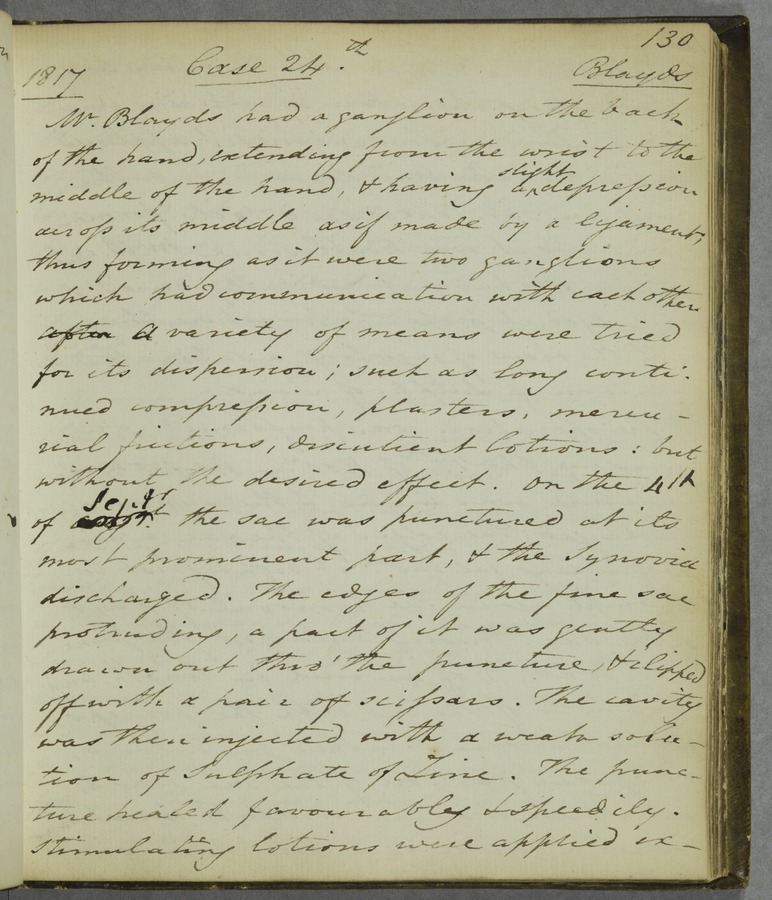 130
1817 Case 24.th Blayds
Mr. Blayds had a ganglion on the back
of the hand, extending from the wrist to the
middle of the hand, & having a slight depression
across its middle as if made by a ligament,
thus forming as it were two ganglions
which had communication with each other
after A variety of means were tried
for its dispersion; such as long conti-
nued compression, plasters, mercu-
rial frictions, discutient lotions: but
without the desired effect. On the 4th
of Sept the sac was punctured at its
most prominent part, & the Synovia
discharged. The edges of the fine sac
protruding, a part of it was gently
drawn out thro' the puncture, & clipped
off with a pair of scissars. The cavity
was then injected with a weak solu-
tion of Sulphate of Zinc. The punc-
ture healed favourably & speedily.
Stimulating lotions were applied ex-